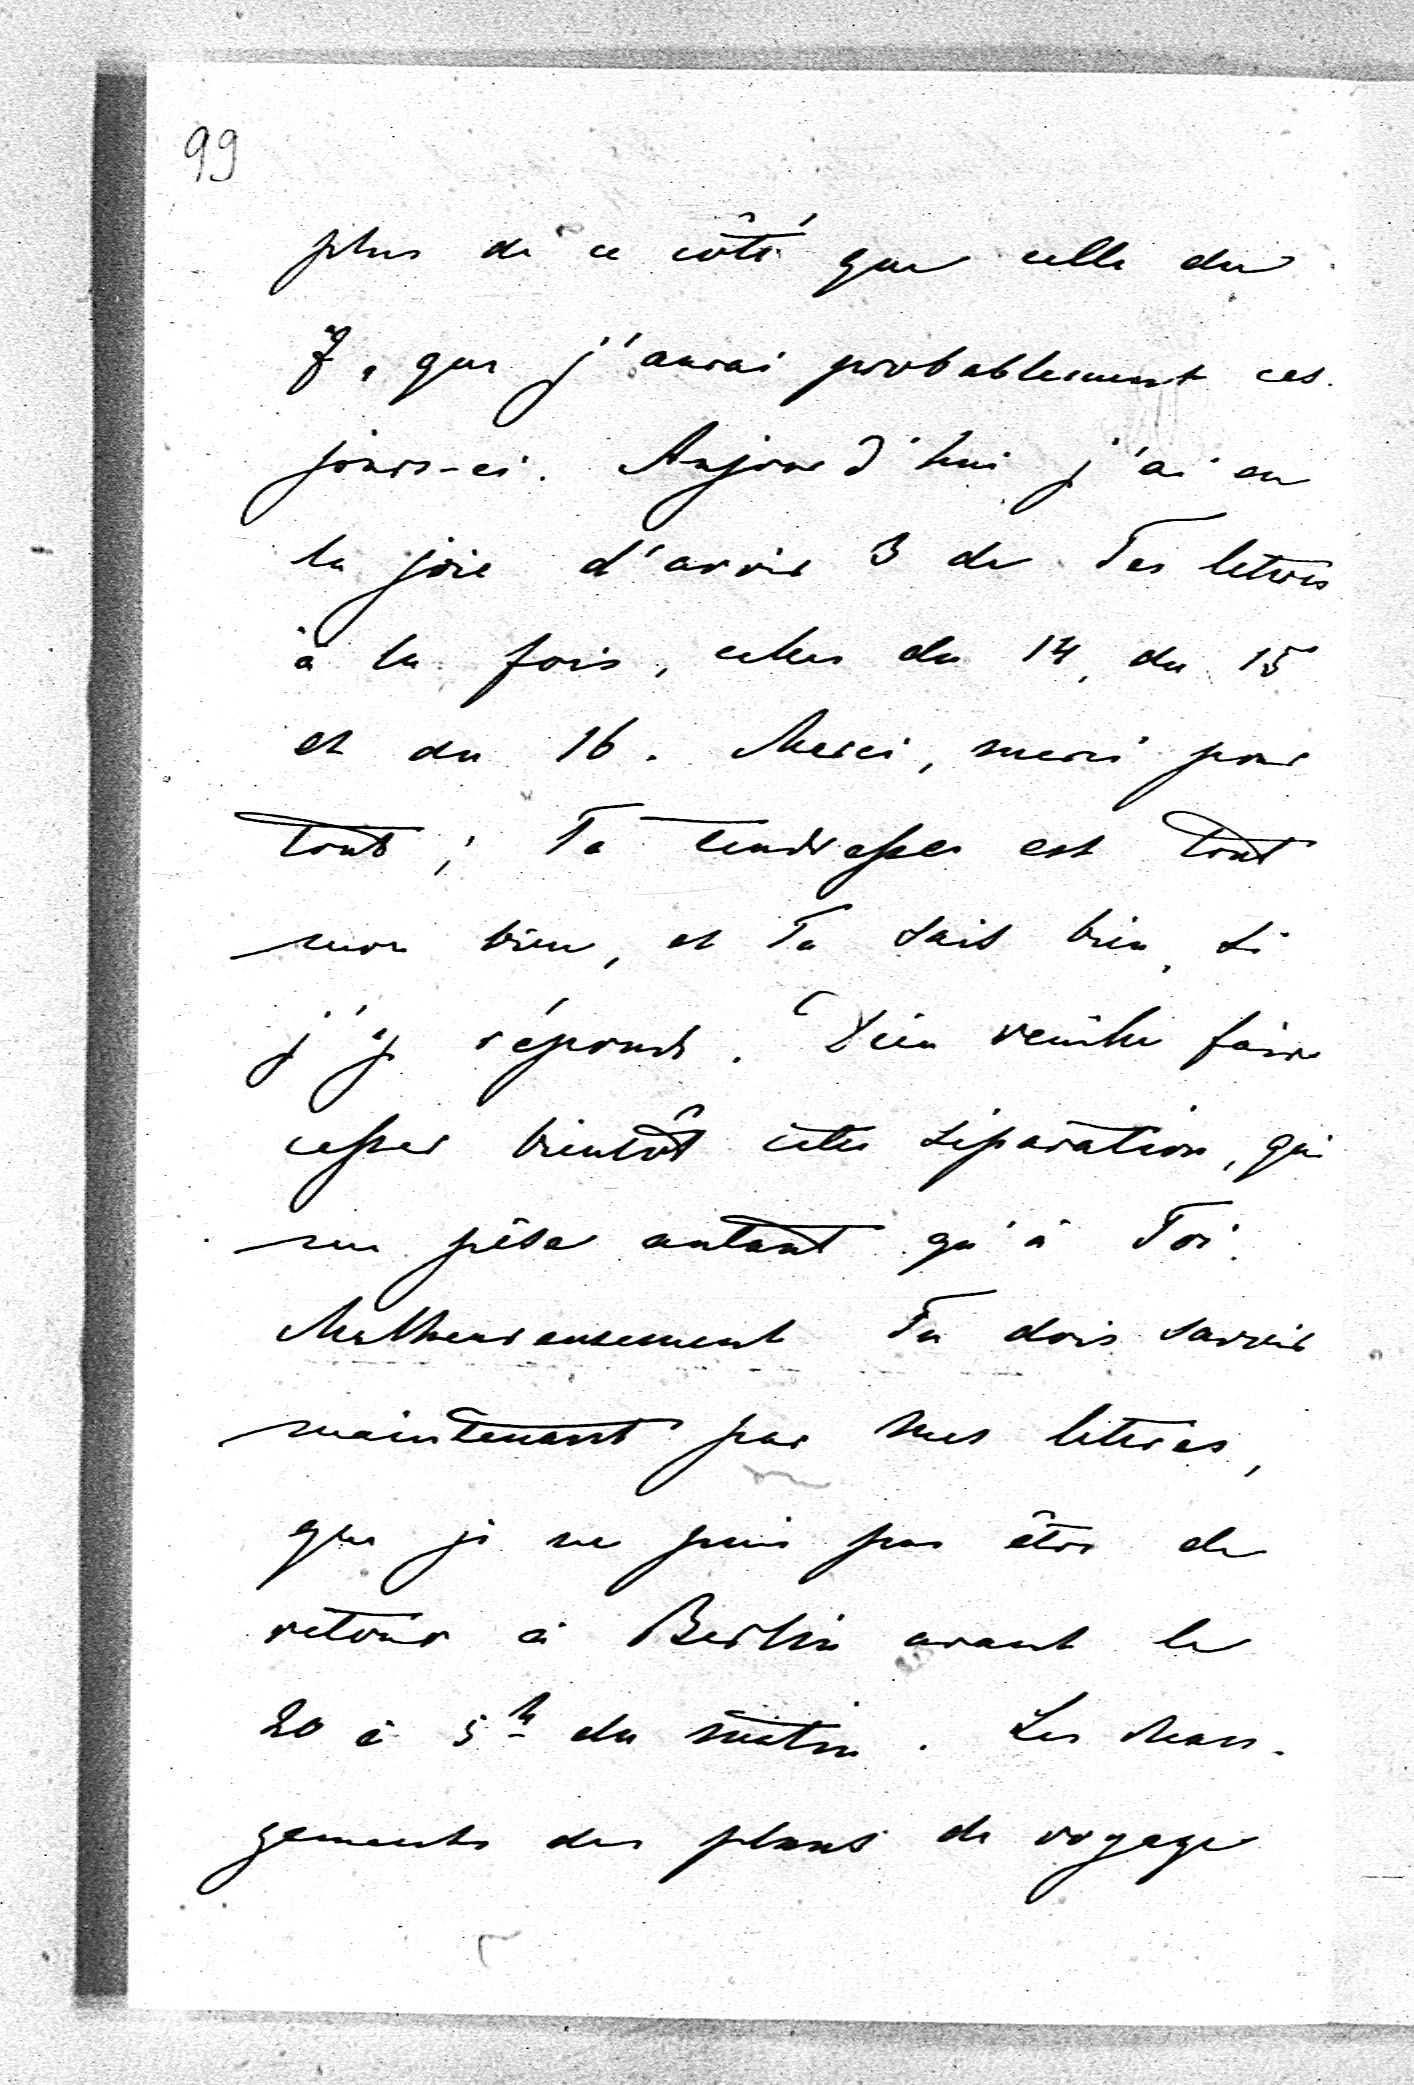 99
plus de ce côté que celle du
7, que j'aurai probablement ces
jours-ci. Aujourd'hui j'ai eu
la joie d'avoir 3 de Tes lettres
à la fois, celles du 14, du 15
et du 16. Merci, merci pour
tout; Ta tendresse est tout
mon bien, et Tu sais bien, si
j'y réponds. Dieu veuille faire
cesser bientôt cette séparation, qui
me pèse autant qu'à Toi.
Malheureusement Tu dois savoir
maintenant par mes lettres,
que je ne puis pas être de
retour à Berlin avant le
20 à 5h du matin. Les chan-
gements des plans de voyage